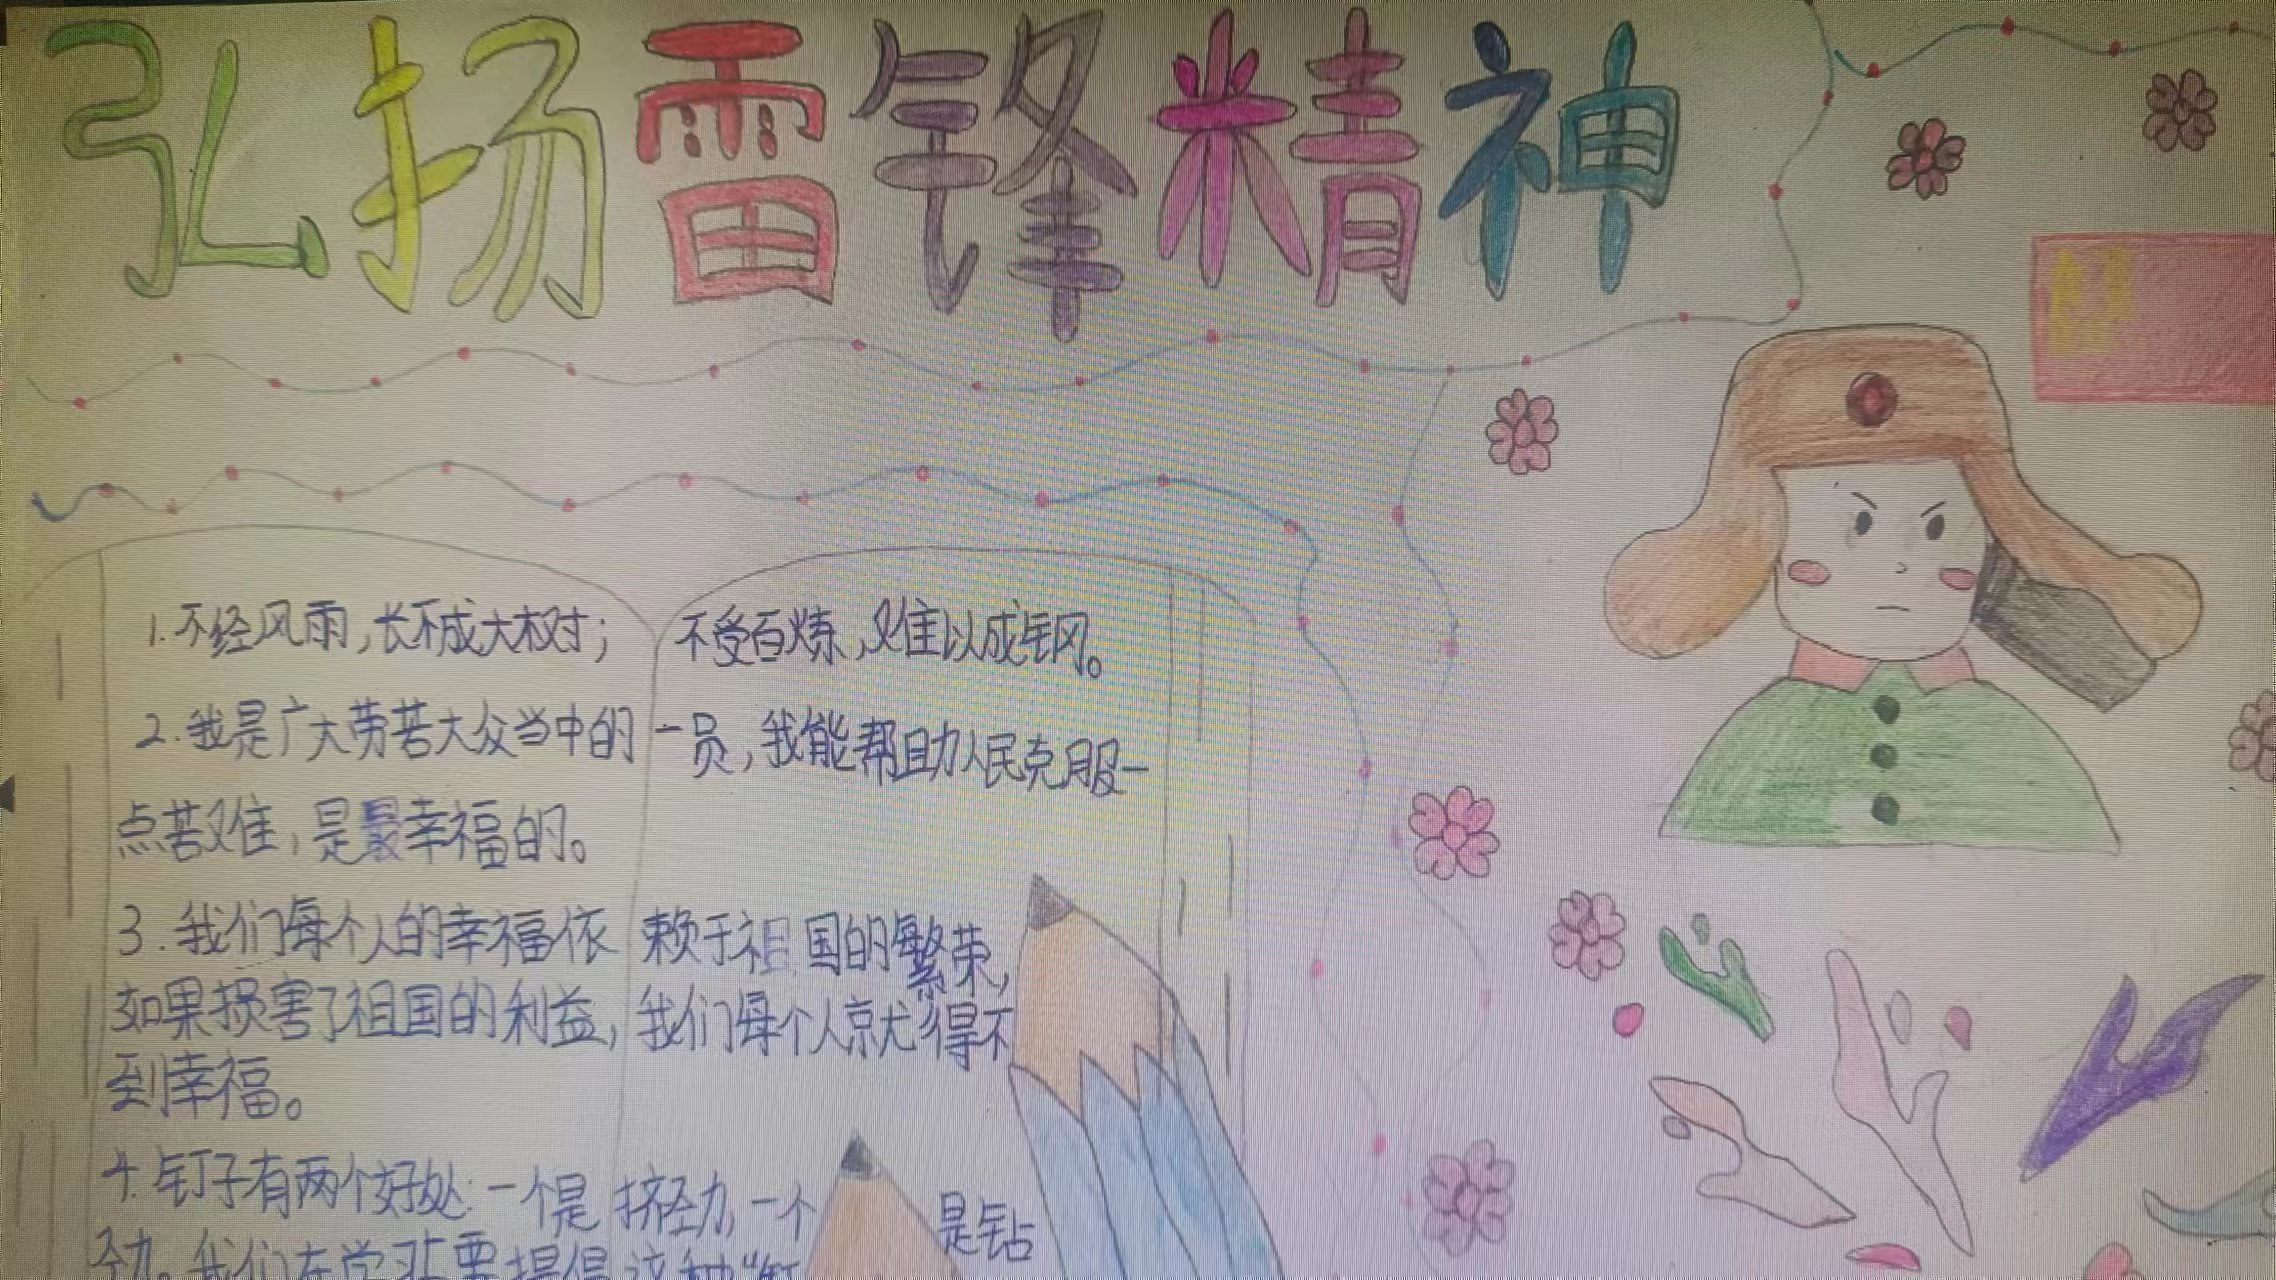 弘扬雷锋精神
1.不经风雨,长不成大树; 不受百炼,难以成钢。
2.我是广大劳苦大众当中的一员,我能帮助人民克服一
点苦难,是最幸福的。
3.我们每个人的幸福依赖于祖国的繁荣,
如果损害了祖国的利益,我们每个人就得不
到幸福。
4.钉子有两个好处:一个是挤劲,一个是钻
劲。我们在学习